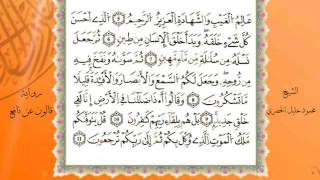 الشيخ
محمود خليل الحصري
عَٰلِمُ الْغَيْبِ وَالشَّهَٰدَةِ الْعَزِيزُ الرَّحِيمُ الذِي أَحْسَنَ
كُلَّ شَيْءٍ خَلَقَهُ وَبَدَأَ خَلْقَ الْإِنسَٰنِ مِن طِينٍ ثُمَّ جَعَلَ
نَسْلَهُ مِن سُلَٰلَةٍ مِّن مَّآءٍ مَّهِينٍ ثُمَّ سَوَّىٰهُ وَنَفَخَ فِيهِ
مِن رُّوحِهِ وَجَعَلَ لَكُمُ السَّمْعَ وَالْأَبْصَٰرَ وَالْأَفْـِٔدَةَ قَلِيلًا
مَّا تَشْكُرُونَ وَقَالُوا أَٰ.ذَا ضَلَلْنَا فِي الْأَرْضِ إِنَّا لَفِي
خَلْقٍ جَدِيدٍ بَلْ هُم بِلِقَآءِ رَبِّهِمْ كَٰفِرُونَ قُلْ يَتَوَفَّىٰكُم
مَّلَكُ الْمَوْتِ الذِي وُكِّلَ بِكُمْ ثُمَّ إِلَىٰ رَبِّكُمْ تُرْجَعُونَ
رواية
قالون عن نافع